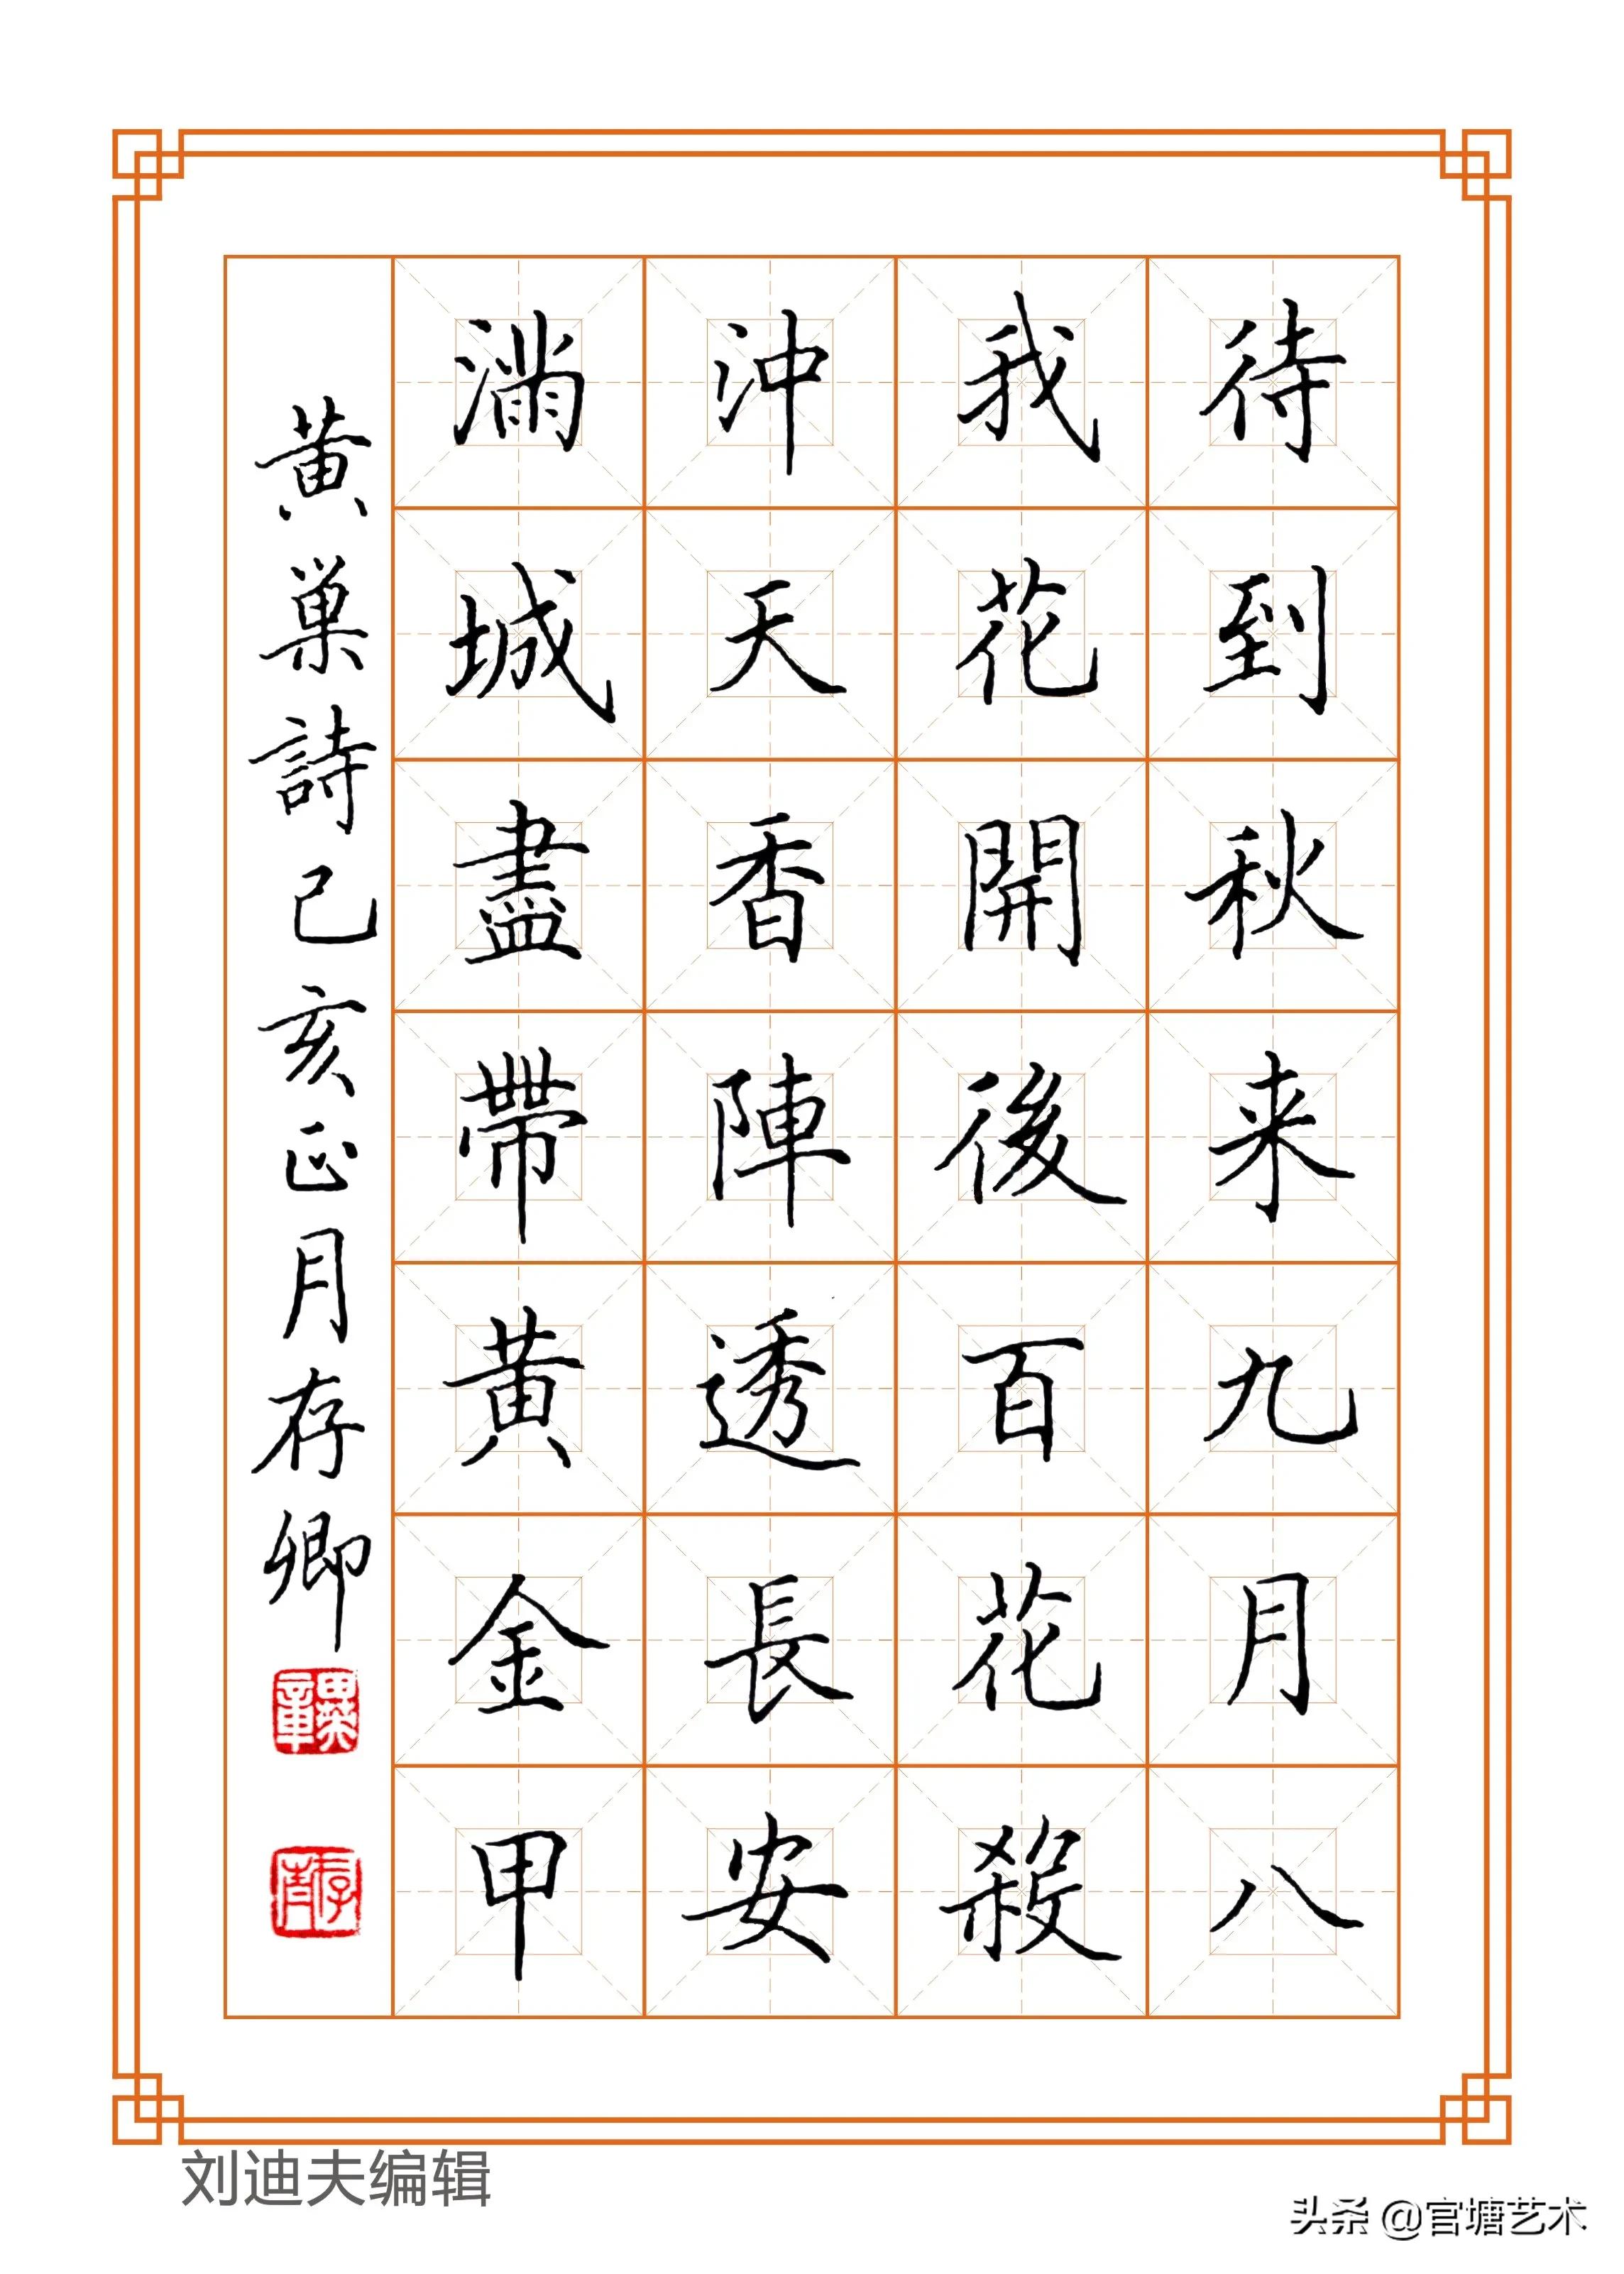 待到秋来九月八
我花開後百花殺
沖天香陣透長安
滿城盡帶黃金甲
黄巢詩己亥正月存卿
刘迪夫编辑
头条 @官塘艺术